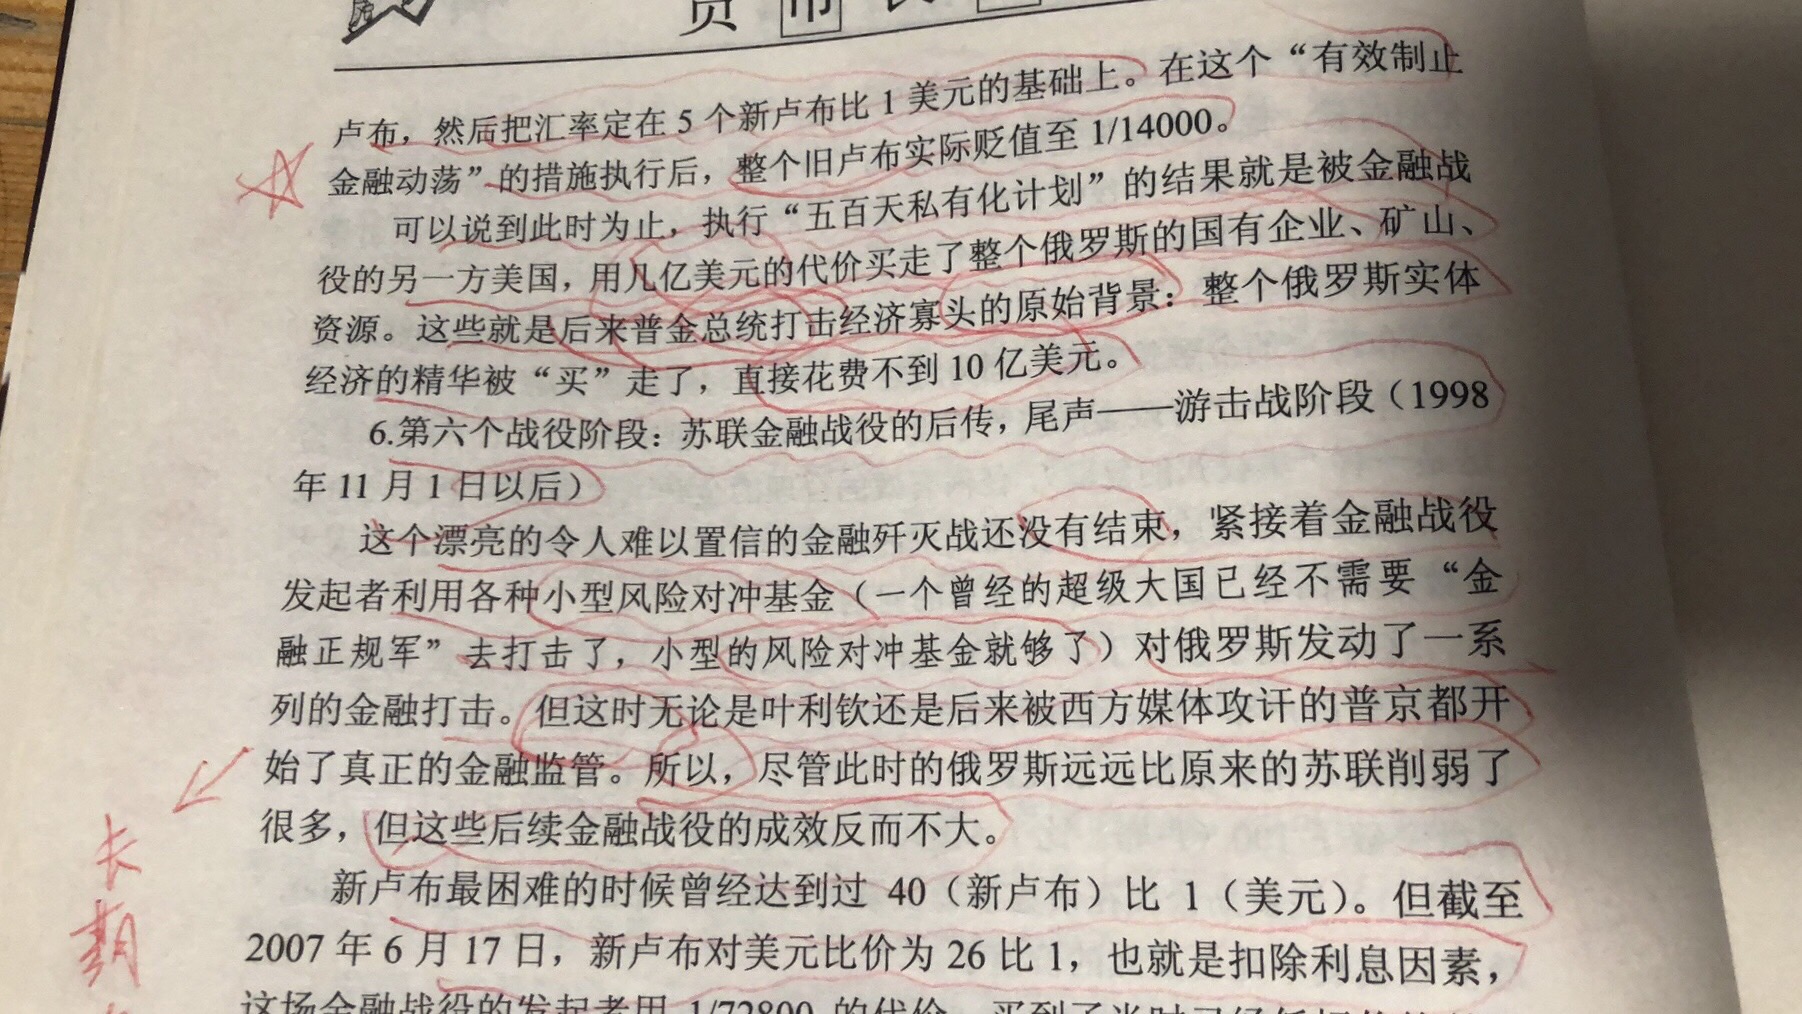 货币
卢布，然后把汇率定在 5 个新卢布比 1 美元的基础上。在这个“有效制止
金融动荡”的措施执行后，整个旧卢布实际贬值至 1/14000。
可以说到此时为止，执行“五百天私有化计划”的结果就是被金融战
役的另一方美国，用几亿美元的代价买走了整个俄罗斯的国有企业、矿山、
资源。这些就是后来普金总统打击经济寡头的原始背景：整个俄罗斯实体
经济的精华被“买”走了，直接花费不到 10 亿美元。
6.第六个战役阶段：苏联金融战役的后传，尾声——游击战阶段（1998
年 11 月 1 日以后）
这个漂亮的令人难以置信的金融歼灭战还没有结束，紧接着金融战役
发起者利用各种小型风险对冲基金（一个曾经的超级大国已经不需要“金
融正规军”去打击了，小型的风险对冲基金就够了）对俄罗斯发动了一系
列的金融打击。但这时无论是叶利钦还是后来被西方媒体攻讦的普京都开
始了真正的金融监管。所以，尽管此时的俄罗斯远远比原来的苏联削弱了
很多，但这些后续金融战役的成效反而不大。
长期
新卢布最困难的时候曾经达到过 40（新卢布）比 1（美元）。但截至
2007 年 6 月 17 日，新卢布对美元比价为 26 比 1，也就是扣除利息因素，
这场金融战役的发起者用 1/72800 的代价